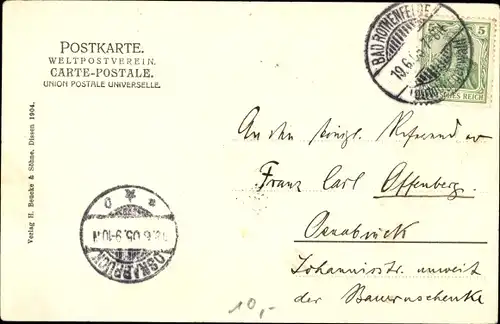 POSTKARTE.
WELTPOSTVEREIN.
CARTE-POSTALE.
UNION POSTALE UNIVERSELLE.
Verlag H. Beucke & Söhne, Dissen 1904.
BAD ROTHENFELDE
19.6.
5
REICH
An den königl. Referendar
Franz Carl Offenberg
Osnabrück
Johannisstr. unweit
der Bauernschenke
OSNABRÜCK
19.6.05.9-10 N
10,-